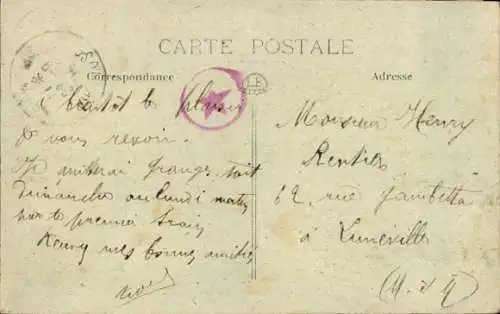 CARTE POSTALE
Correspondance
LB
A bientôt le plaisir
de vous revoir.
Je quitterai Granges soit
dimanche ou lundi matin
par le premier train
mes bonnes amitiés
Adresse
Monsieur Henry
Rentier
62 rue Gambetta
à Lunéville
(M. et M)